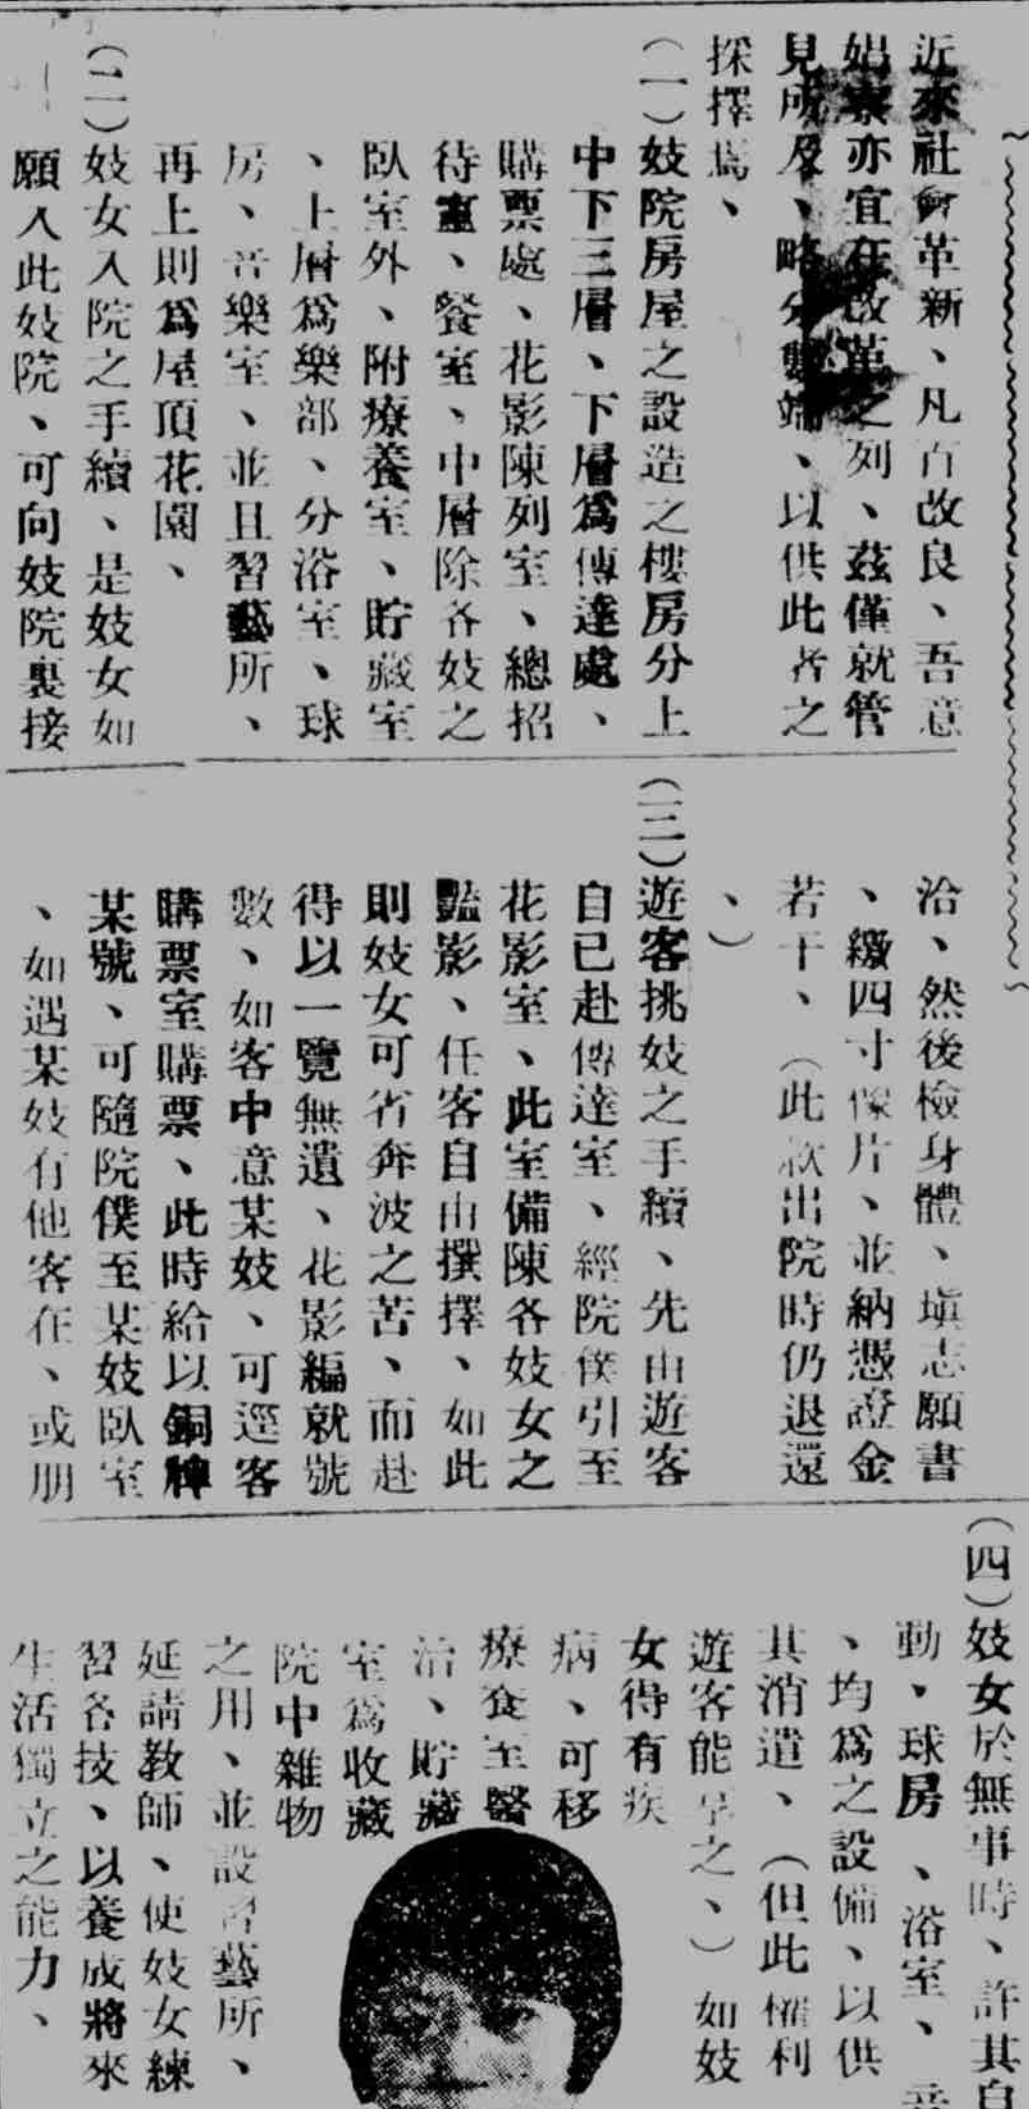 近來社會革新、凡百改良、吾意
娼寮亦宜在改革之列、茲僅就管
見所及、略分數端、以供此者之
採擇焉、
(一)妓院房屋之設造之樓房分上
中下三層、下層爲傳達處、
購票處、花影陳列室、總招
待室、餐室、中層除各妓之
臥室外、附療養室、貯藏室
、上層爲樂部、分浴室、球
房、音樂室、並且習藝所、
再上則爲屋頂花園、
(二)妓女入院之手續、是妓女如
願入此妓院、可向妓院裏接
洽、然後檢身體、塡志願書
、繳四寸像片、並納憑證金
若干、(此款出院時仍退還
、)
(三)遊客挑妓之手續、先由遊客
自己赴傳達室、經院僕引至
花影室、此室備陳各妓女之
豔影、任客自由撰擇、如此
則妓女可省奔波之苦、而赴
得以一覽無遺、花影編就號
數、如客中意某妓、可逕客
購票室購票、此時給以銅牌
某號、可隨院僕至某妓臥室
、如遇某妓有他客在、或朋
(四)妓女於無事時、許其自
動、球房、浴室、音
、均爲之設備、以供
其消遣、(但此權利
遊客能享之、)如妓
女得有疾
病、可移
療食至醫
治、貯藏
室爲收藏
院中雜物
之用、並設習藝所、
延請教師、使妓女練
習各技、以養成將來
生活獨立之能力、